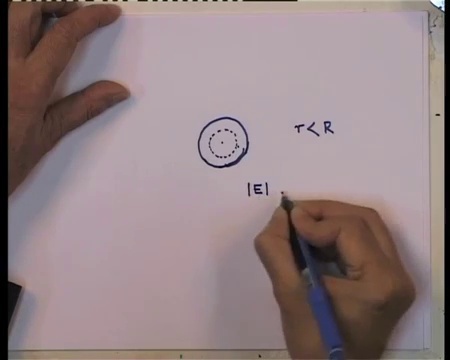 r < R
|E|